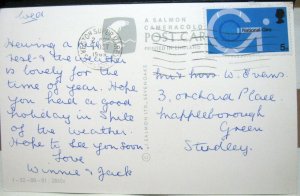 Wed
A SALMON
CAMERACOLOUR
POST CARD
National Giro
5p
Having a nice
rest & the weather
is lovely for the
time of year. Hope
you had a good
holiday in spite
of the weather.
Hope to see you soon
Love
Winnie & Jack
Mr & Mrs W. Evans
3, orchard Place
Mappleborough
Green
Studley.